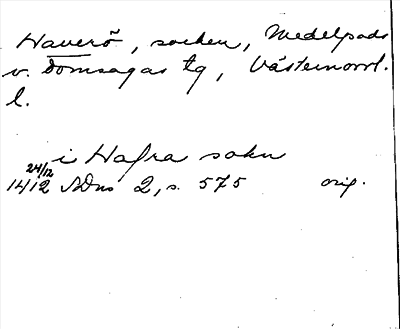 Haverö, socken, Medelpads
v. Domsagas tg, Västernorrl.
l.
i Hafra sokn
24/12
1412 SDns 2, s. 575 orig.